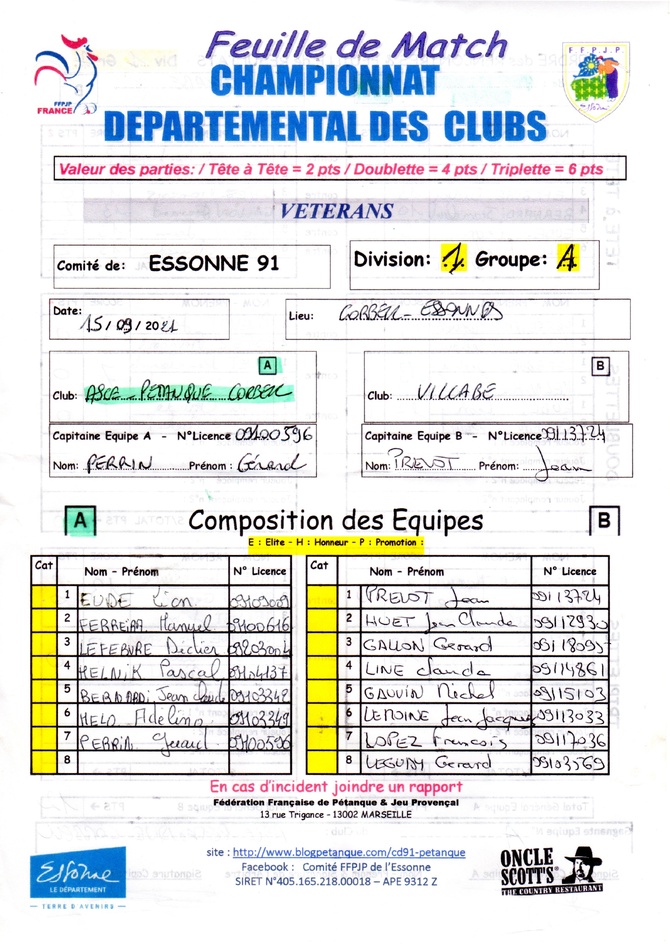 Feuille de Match
CHAMPIONNAT
DEPARTEMENTAL DES CLUBS
FFPJP
FRANCE
F F P J P
Valeur des parties: / Tête à Tête = 2 pts / Doublette = 4 pts / Triplette = 6 pts
VETERANS
Comité de: ESSONNE 91
Division: 1 Groupe: A
Date: 15/09/2021
Lieu: CORBEIL-ESSONNES
A
Club: ASCE PETANQUE CORBEIL
Capitaine Equipe A - N°Licence 09100596
Nom: PERRIN Prénom: Gérard
B
Club: VILLABE
Capitaine Equipe B - N°Licence 09113724
Nom: PREVOT Prénom: Jean
A Composition des Equipes B
E : Elite - H : Honneur - P : Promotion :
Cat Nom - Prénom N° Licence
1 EUDE
2 FERREIRA Manuel 09100616
3 LEFEBVRE Didier
4 Pascal 09104137
5 BERNARDI Jean Claude 09103342
6 MELO Adelino 09103349
7 PERRIN Gérard 09100596
8
Cat Nom - Prénom N° Licence
1 PREVOT Jean 09113724
2 HUET Jean Claude 09112930
3 GALLON Gerard
4 LINE Claude 09114861
5 GAUVIN Michel 09115103
6 LEMOINE Jean Jacques 09113033
7 LOPEZ Francois 09117036
8 LEGUAY Gerard 09103569
En cas d'incident joindre un rapport
Fédération Française de Pétanque & Jeu Provençal
13 rue Trigance - 13002 MARSEILLE
site : http://www.blogpetanque.com/cd91-petanque
Facebook : Comité FFPJP de l'Essonne
SIRET N°405.165.218.00018 – APE 9312 Z
Essonne
LE DÉPARTEMENT
TERRE D'AVENIRS
ONCLE
SCOTT'S
THE COUNTRY RESTAURANT